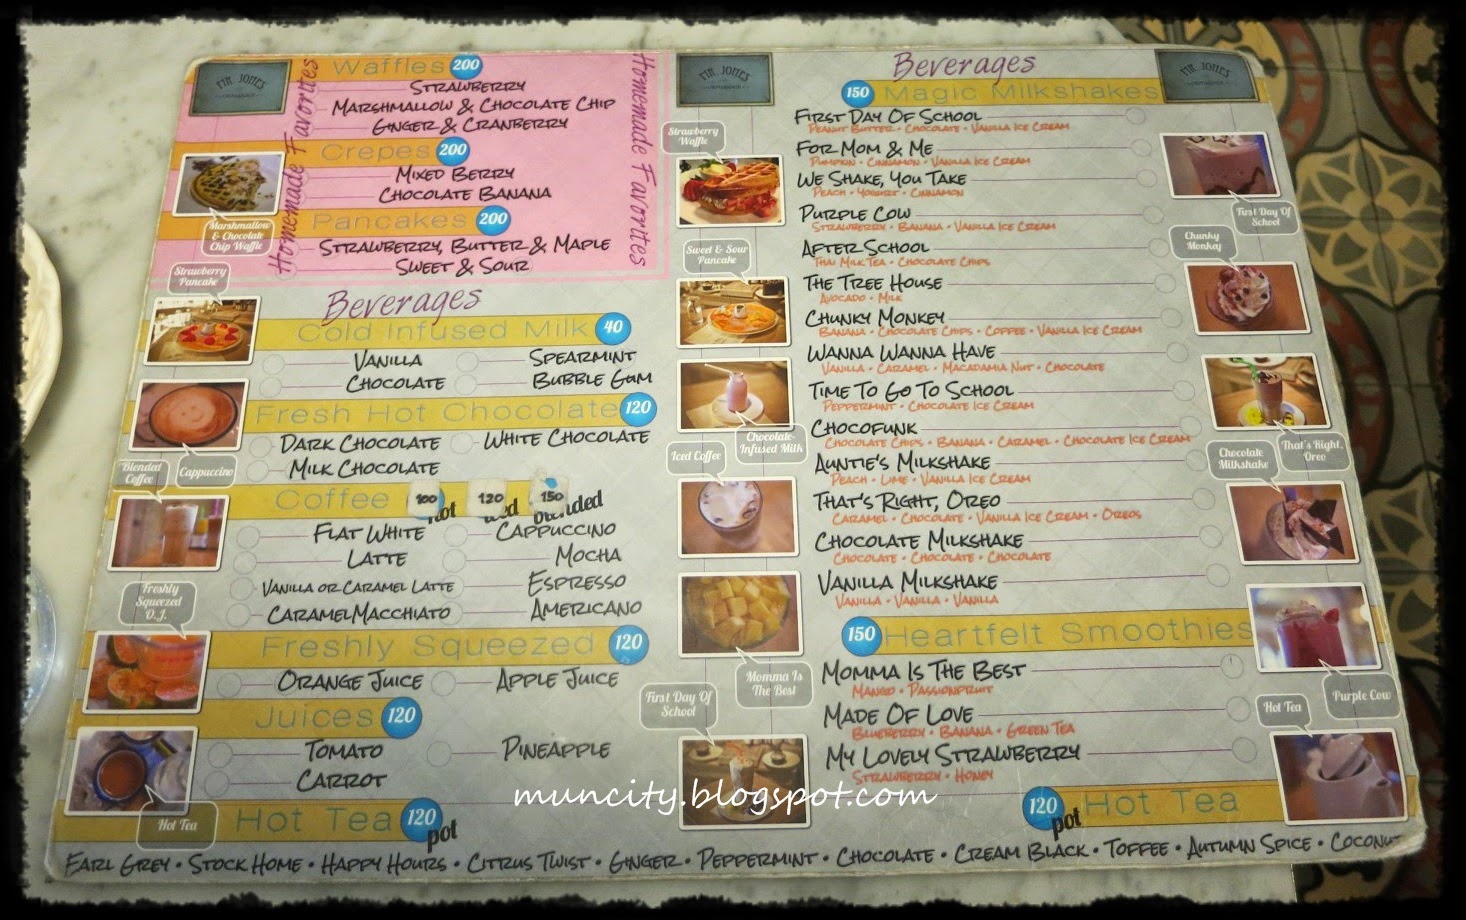 MR. JONES
Homemade Favorites
Waffles 200
STRAWBERRY
MARSHMALLOW & CHOCOLATE CHIP
GINGER & CRANBERRY
Crepes 200
MIXED BERRY
CHOCOLATE BANANA
Pancakes 200
STRAWBERRY, BUTTER & MAPLE
SWEET & SOUR
Homemade Favorites
Marshmallow
& Chocolate
Chip Waffle
Strawberry
Pancake
Beverages
Cold Infused Milk 40
VANILLA SPEARMINT
CHOCOLATE BUBBLE GUM
Fresh Hot Chocolate 120
DARK CHOCOLATE WHITE CHOCOLATE
MILK CHOCOLATE
Blended
Coffee
Cappuccino
Coffee 100 hot 120 iced 150 blended
FLAT WHITE CAPPUCCINO
LATTE MOCHA
VANILLA OR CARAMEL LATTE ESPRESSO
CARAMEL MACCHIATO AMERICANO
Freshly
Squeezed
O.J.
Freshly Squeezed 120
ORANGE JUICE APPLE JUICE
Juices 120
TOMATO PINEAPPLE
CARROT
Hot Tea
Hot Tea 120 pot
MR. JONES
Strawberry
Waffle
Sweet & Sour
Pancake
Chocolate-
Infused Milk
Iced Coffee
Momma Is
The Best
First Day Of
School
Beverages
MR. JONES
150 Magic Milkshakes
FIRST DAY OF SCHOOL
PEANUT BUTTER • CHOCOLATE • VANILLA ICE CREAM
FOR MOM & ME
PUMPKIN • CINNAMON • VANILLA ICE CREAM
WE SHAKE, YOU TAKE
PEACH • YOGURT • CINNAMON
PURPLE COW
STRAWBERRY • BANANA • VANILLA ICE CREAM
AFTER SCHOOL
THAI MILK TEA • CHOCOLATE CHIPS
THE TREE HOUSE
AVOCADO • MILK
CHUNKY MONKEY
BANANA • CHOCOLATE CHIPS • COFFEE • VANILLA ICE CREAM
WANNA WANNA HAVE
VANILLA • CARAMEL • MACADAMIA NUT • CHOCOLATE
TIME TO GO TO SCHOOL
PEPPERMINT • CHOCOLATE ICE CREAM
CHOCOFUNK
CHOCOLATE CHIPS • BANANA • CARAMEL • CHOCOLATE ICE CREAM
AUNTIE'S MILKSHAKE
PEACH • LIME • VANILLA ICE CREAM
THAT'S RIGHT, OREO
CARAMEL • CHOCOLATE • VANILLA ICE CREAM • OREOS
CHOCOLATE MILKSHAKE
CHOCOLATE • CHOCOLATE • CHOCOLATE
VANILLA MILKSHAKE
VANILLA • VANILLA • VANILLA
150 Heartfelt Smoothies
MOMMA IS THE BEST
MANGO • PASSIONFRUIT
MADE OF LOVE
BLUEBERRY • BANANA • GREEN TEA
MY LOVELY STRAWBERRY
STRAWBERRY • HONEY
120 pot Hot Tea
First Day Of
School
Chunky
Monkey
That's Right,
Oreo
Chocolate
Milkshake
Purple Cow
Hot Tea
EARL GREY • STOCK HOME • HAPPY HOURS • CITRUS TWIST • GINGER • PEPPERMINT • CHOCOLATE • CREAM BLACK • TOFFEE • AUTUMN SPICE • COCONUT
muncity.blogspot.com